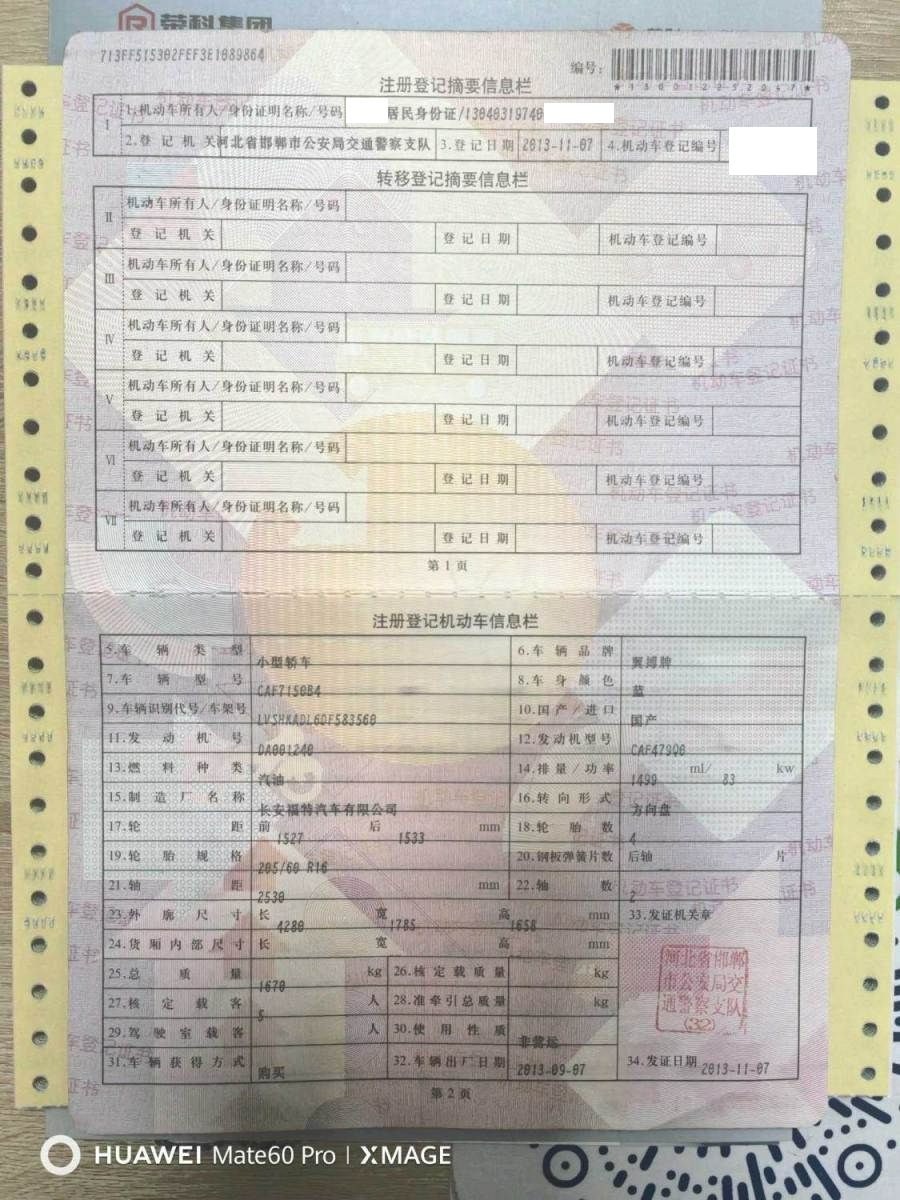 荣科集团
713FF515302FEF3E1089864
编号:
*130012252047*
注册登记摘要信息栏
I
1.机动车所有人/身份证明名称/号码 居民身份证/13040319740
2.登记机关 河北省邯郸市公安局交通警察支队 3.登记日期 2013-11-07 4.机动车登记编号
转移登记摘要信息栏
II 机动车所有人/身份证明名称/号码
登记机关 登记日期 机动车登记编号
III 机动车所有人/身份证明名称/号码
登记机关 登记日期 机动车登记编号
IV 机动车所有人/身份证明名称/号码
登记机关 登记日期 机动车登记编号
V 机动车所有人/身份证明名称/号码
登记机关 登记日期 机动车登记编号
VI 机动车所有人/身份证明名称/号码
登记机关 登记日期 机动车登记编号
VII 机动车所有人/身份证明名称/号码
登记机关 登记日期 机动车登记编号
第1页
注册登记机动车信息栏
5.车辆类型 小型轿车 6.车辆品牌 翼搏牌
7.车辆型号 CAF7150B4 8.车身颜色 蓝
9.车辆识别代号/车架号 LVSHKADL6DF583560 10.国产/进口 国产
11.发动机号 DA001240 12.发动机型号 CAF479Q0
13.燃料种类 汽油 14.排量/功率 1499 ml/ 83 kw
15.制造厂名称 长安福特汽车有限公司 16.转向形式 方向盘
17.轮距 前 1527 后 1533 mm 18.轮胎数 4
19.轮胎规格 205/60 R16 20.钢板弹簧片数 后轴 -- 片
21.轴距 2530 mm 22.轴数 2
23.外廓尺寸 长 4280 宽 1785 高 1658 mm 33.发证机关章
24.货厢内部尺寸 长 宽 高 mm
25.总质量 1670 kg 26.核定载质量 kg
27.核定载客 5 人 28.准牵引总质量 kg
29.驾驶室载客 人 30.使用性质 非营运
31.车辆获得方式 购买 32.车辆出厂日期 2013-09-07 34.发证日期 2013-11-07
河北省邯郸
市公安局交
通警察支队
(32)
第2页
HUAWEI Mate60 Pro | XMAGE